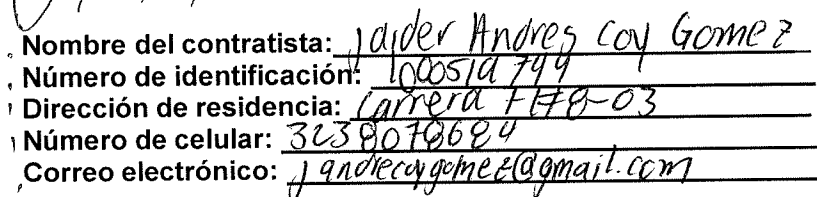 Nombre del contratista: Jaider Andres Coy Gomez
Número de identificación:
Dirección de residencia: Carrera
Número de celular: 3238078684
Correo electrónico: jandrecoygomez@gmail.com